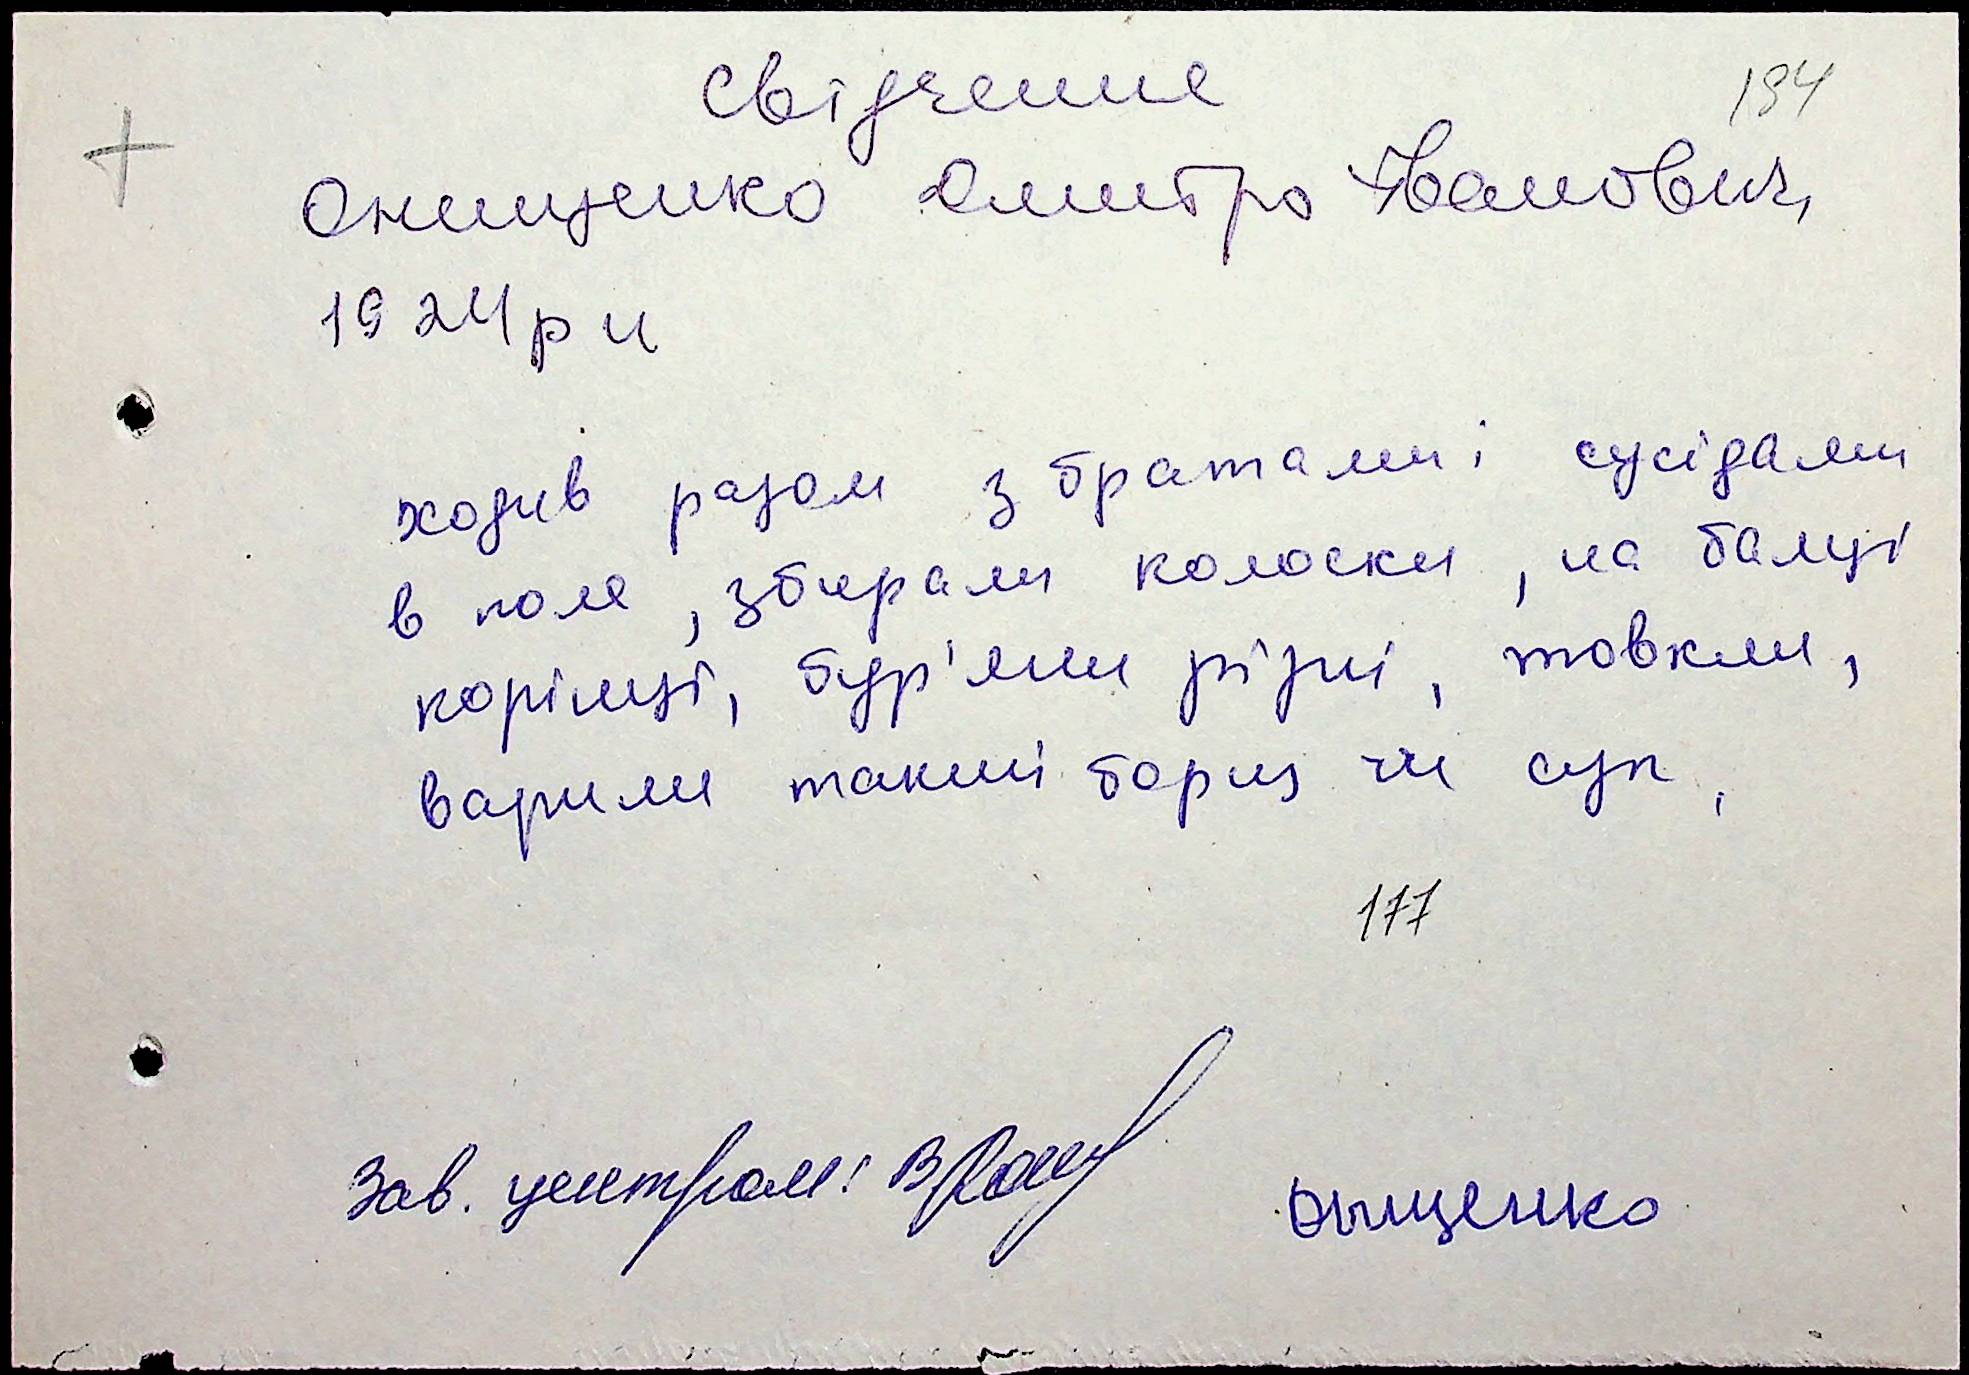 Свідчення
194
Онищенко Дмитро Іванович,
1924 р н
ходив разом з братами і сусідами
в поле, збирали колоски, на балці
корінці, бур'яни різні, товкли,
варили такий борщ чи суп.
177
Зав. центром:
Онищенко